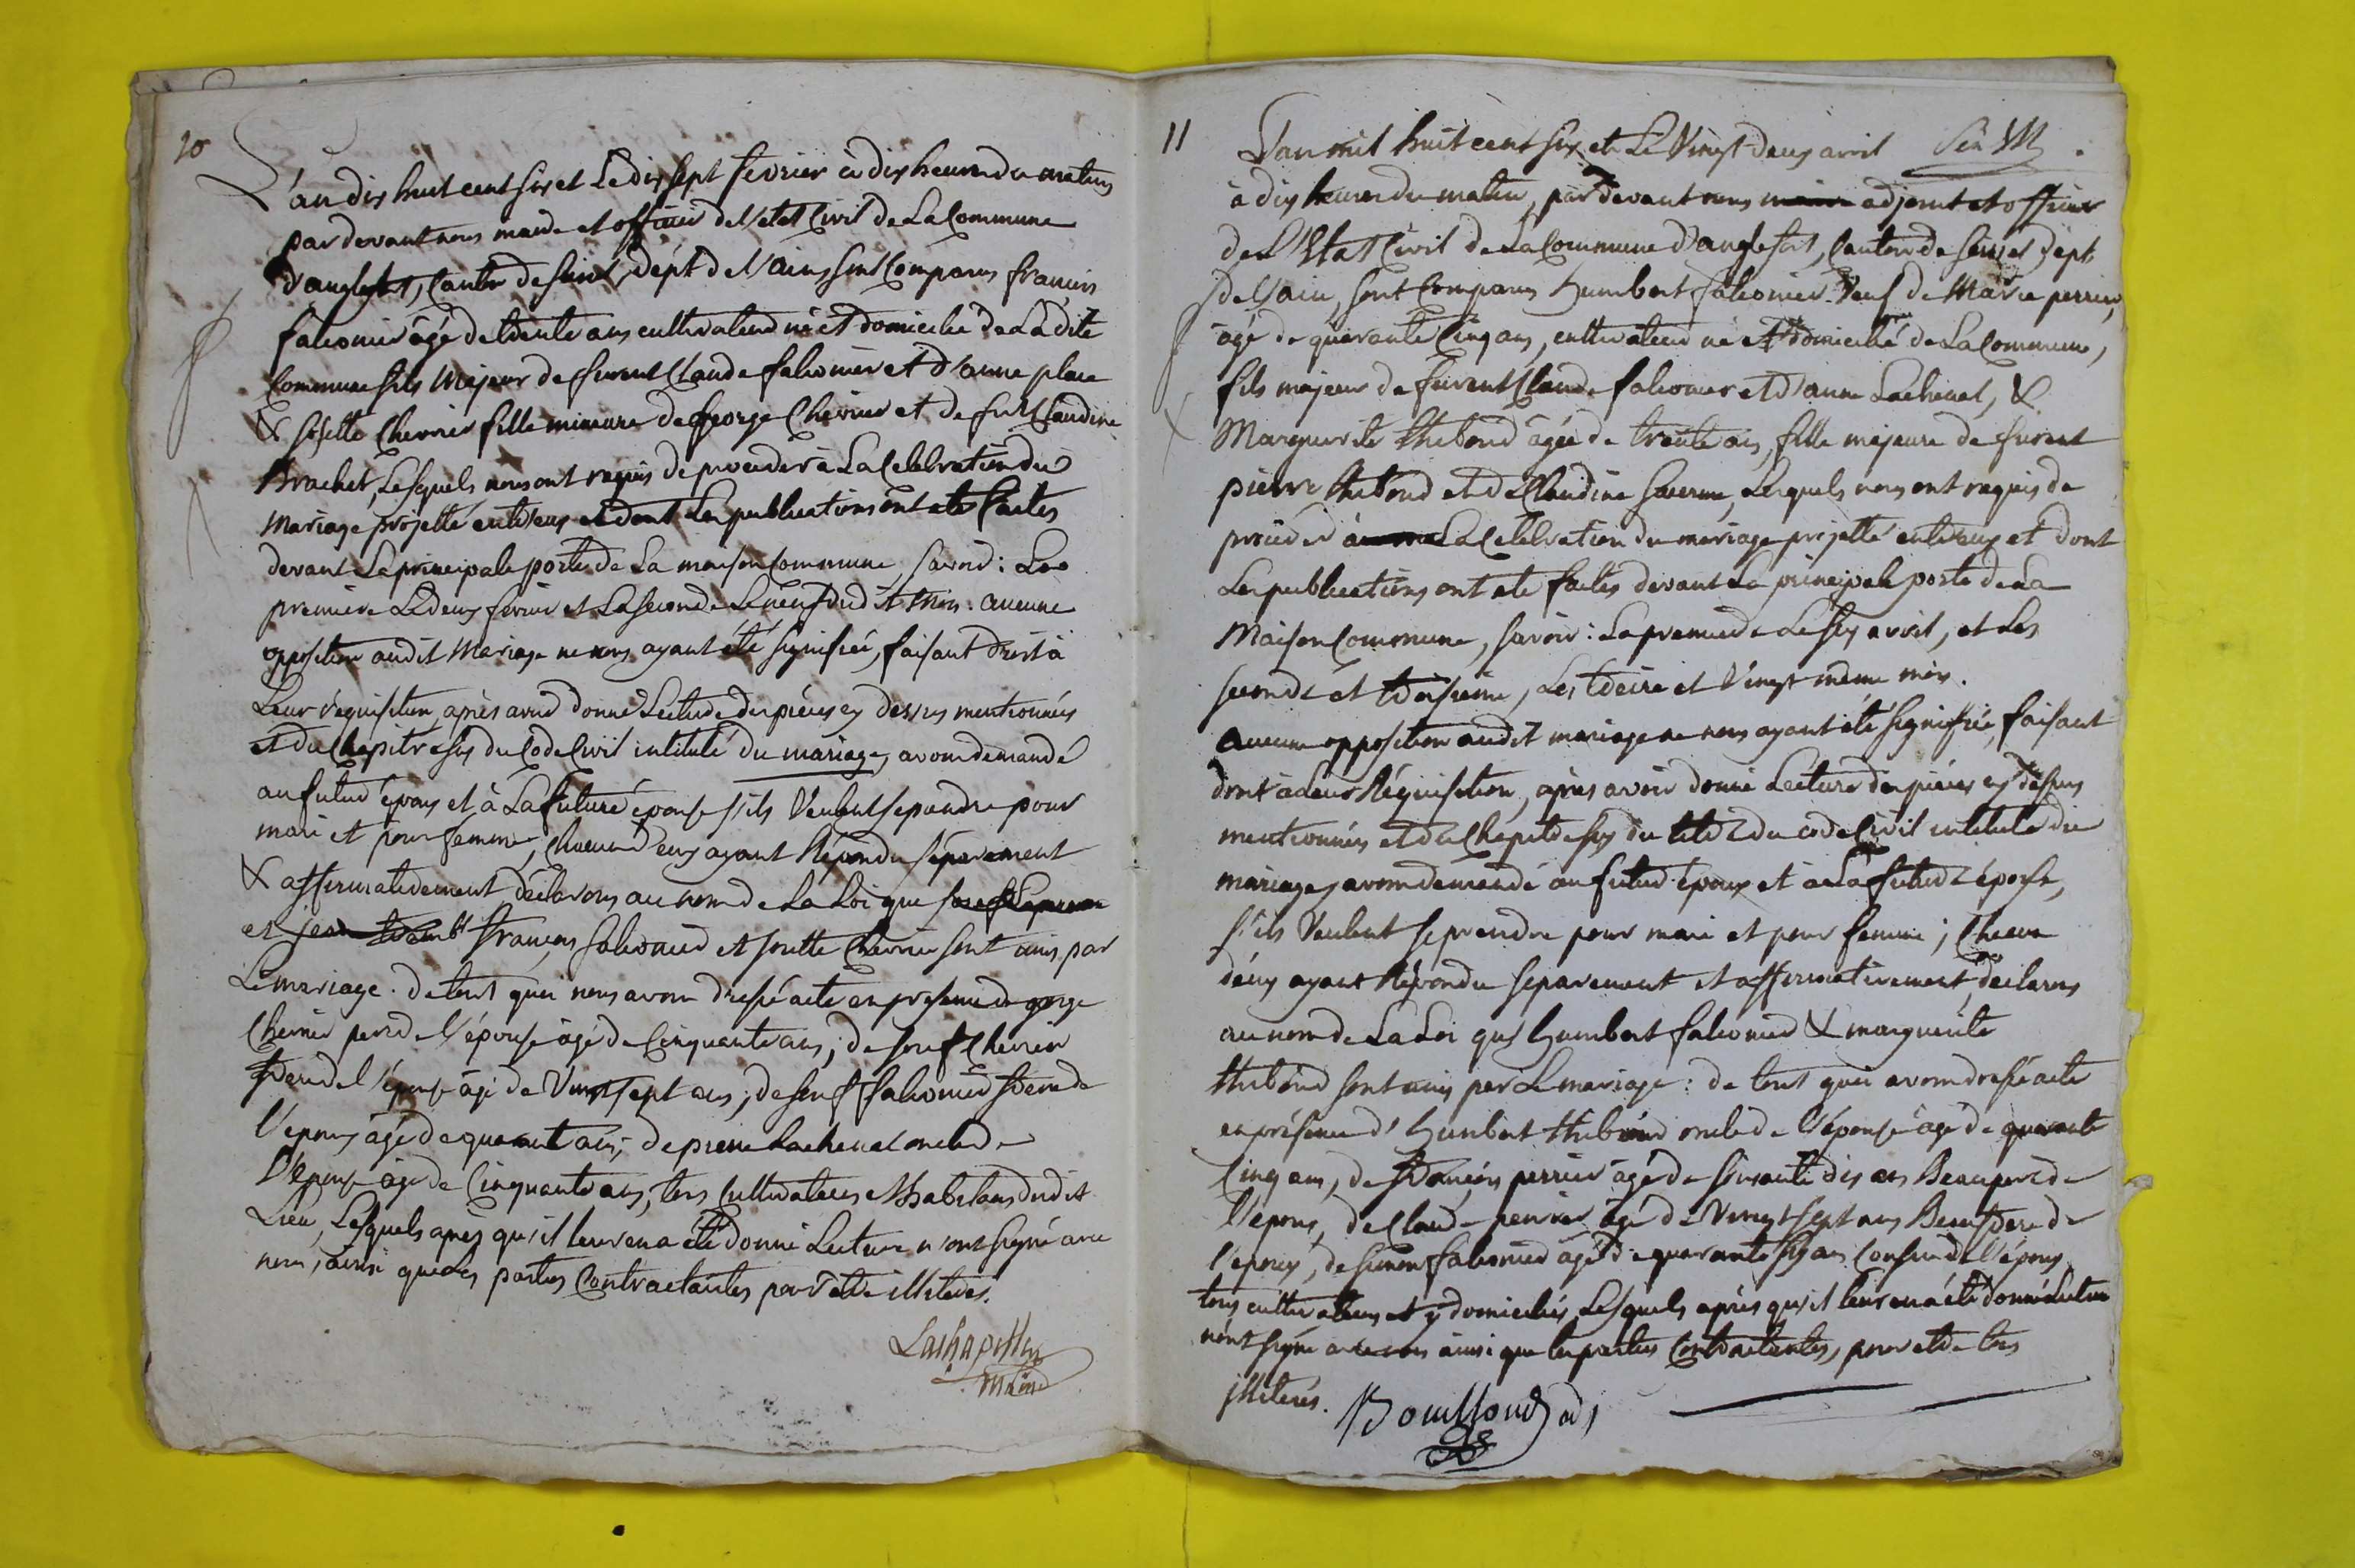 10
L'an dix huit cent six et Le dix sept fevrier à dix heures du matin
par devant nous maire et officier de l'etat Civil de La Commune
d'anglefort, Canton de seissel, dépt de l'ain, sont Comparus francois
falconier âgé de trente ans cultivateur né et domicilié de La dite
Commune fils Majeur de furent Claude falconier et d'anne place
& josette Cherrier fille mineure de george Cherrier et de fut Claudine
Brachet, Lesquels nous ont requis de proceder à La Celebration du
mariage projetté entr'eux et dont Les publications ont été faites
devant La principale porte de La maison Commune, savoir: La
premiere Le deux fevrier et La seconde Le neuf dudit Mois. aucune
opposition audit Mariage ne nous ayant été signifiée, faisant droit à
Leur réquisition, après avoir donné Lecture des pièces cy dessus mentionnées
et du Chapitre six du Code Civil intitulé du mariage, avons demandé
au futur époux et à La future épouse s'ils Veulent se prendre pour
mari et pour femme, chacun d'eux ayant Répondu séparement
& affirmativement, déclarons au nom de La Loi que
et françois falconier et josette Cherrier sont unis par
Le mariage. de tout quoi nous avons dressé acte en presence de george
Cherrier pere de l'épouse âgé de Cinquante ans; de josef Cherrier
frere de l'épouse âgé de Vingt sept ans; de josef falconier frere de
l'epoux âgé de quarante ans; de pierre Lachenal oncle de
L'épouse âgé de Cinquante ans, tous Cultivateurs et habitans dudit
Lieu, Lesquels après qu'il leur en a été donné Lecture n'ont signé avec
nous, ainsi que Les parties Contractantes pour etre illiterés.
Lachapelle
maire
11
L'an mil huit cent six et Le Vingt deux avril
à dix heures du matin, par devant nous maire adjoint et officier
de L'Etat Civil de La Commune d'anglefort, Canton de seissel dépt
de l'ain, sont Comparus humbert falconier Veuf de Marie perrier,
âgé de quarante Cinq ans, cultivateur né et domicilié de La Commune,
fils majeur de furent Claude falconier et d'anne Lachenal, &
Marguerite thiboud âgée de trente ans, fille majeure de furent
pierre thiboud et de Claudine, Lesquels nous ont requis de
proceder à La Celebration du mariage projetté entr'eux et dont
Les publications ont été faites devant La principale porte de La
Maison Commune, savoir: La premiere Le six avril, et Les
seconde et troisieme, Les treize et Vingt même mois.
Aucune opposition audit mariage ne nous ayant été signifiée, faisant
droit à Leur Réquisition, après avoir donné Lecture des pièces cy dessus
mentionnées et du Chapitre six du titre du code Civil intitulé du
mariage, avons demandé au futur époux et à La future épouse,
s'ils Veulent se prendre pour mari et pour femme; Chacun
d'eux ayant Répondu séparement et affirmativement, déclarons
au nom de La Loi que humbert falconier & marguerite
thiboud sont unis par Le mariage: de tout quoi avons dressé acte
en présence d'humbert thiboud oncle de l'épouse âgé de quarante
Cinq ans, de françois perrier âgé de soixante dix ans Beau pere de
l'epoux, de Claude perrier âgé de Vingt sept ans Beau frere de
l'epoux, de simon falconier âgé de quarante six ans Cousin de l'époux
tous cultivateurs et y domiciliés, Lesquels après qu'il leur en a été donné Lecture
n'ont signé avec nous ainsi que les parties Contractantes, pour etre tous
illiterés.
Bouillond adj